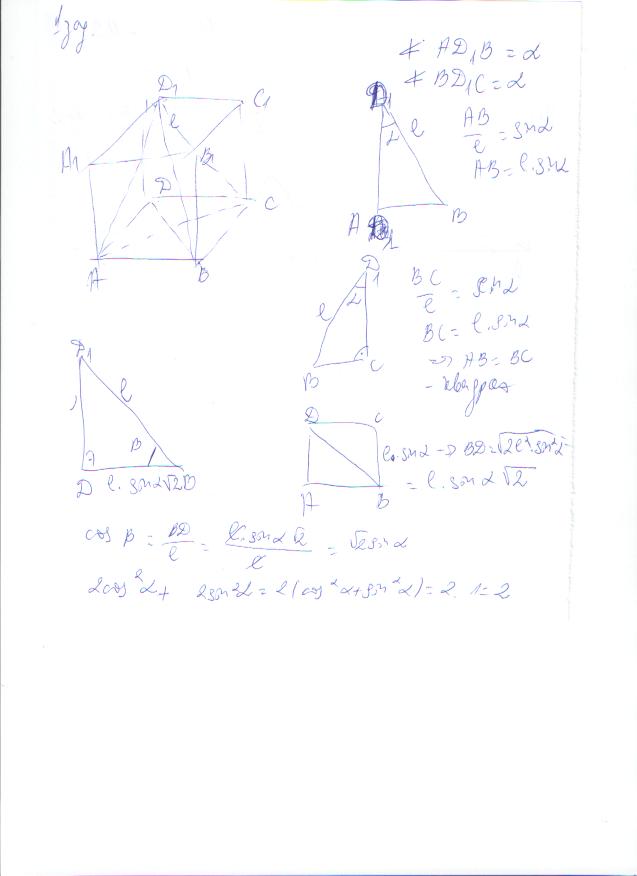 1 зад.
∢ AD₁B = α
∢ BD₁C = α
D₁ C₁ l A₁ B₁ D C A B
D₁ α l A B
AB/l = sinα
AB = l.sinα
D₁ α l B C
BC/l = sinα
BC = l.sinα
=> AB = BC
- квадрат
D₁ l β D l.sinα√2 B
D C A B
l.sinα -> BD = √2l².sin²α
= l.sinα√2
cos β = BD/l = l.sinα√2/l = √2sinα
2cos²α + 2sin²α = 2(cos²α + sin²α) = 2.1 = 2